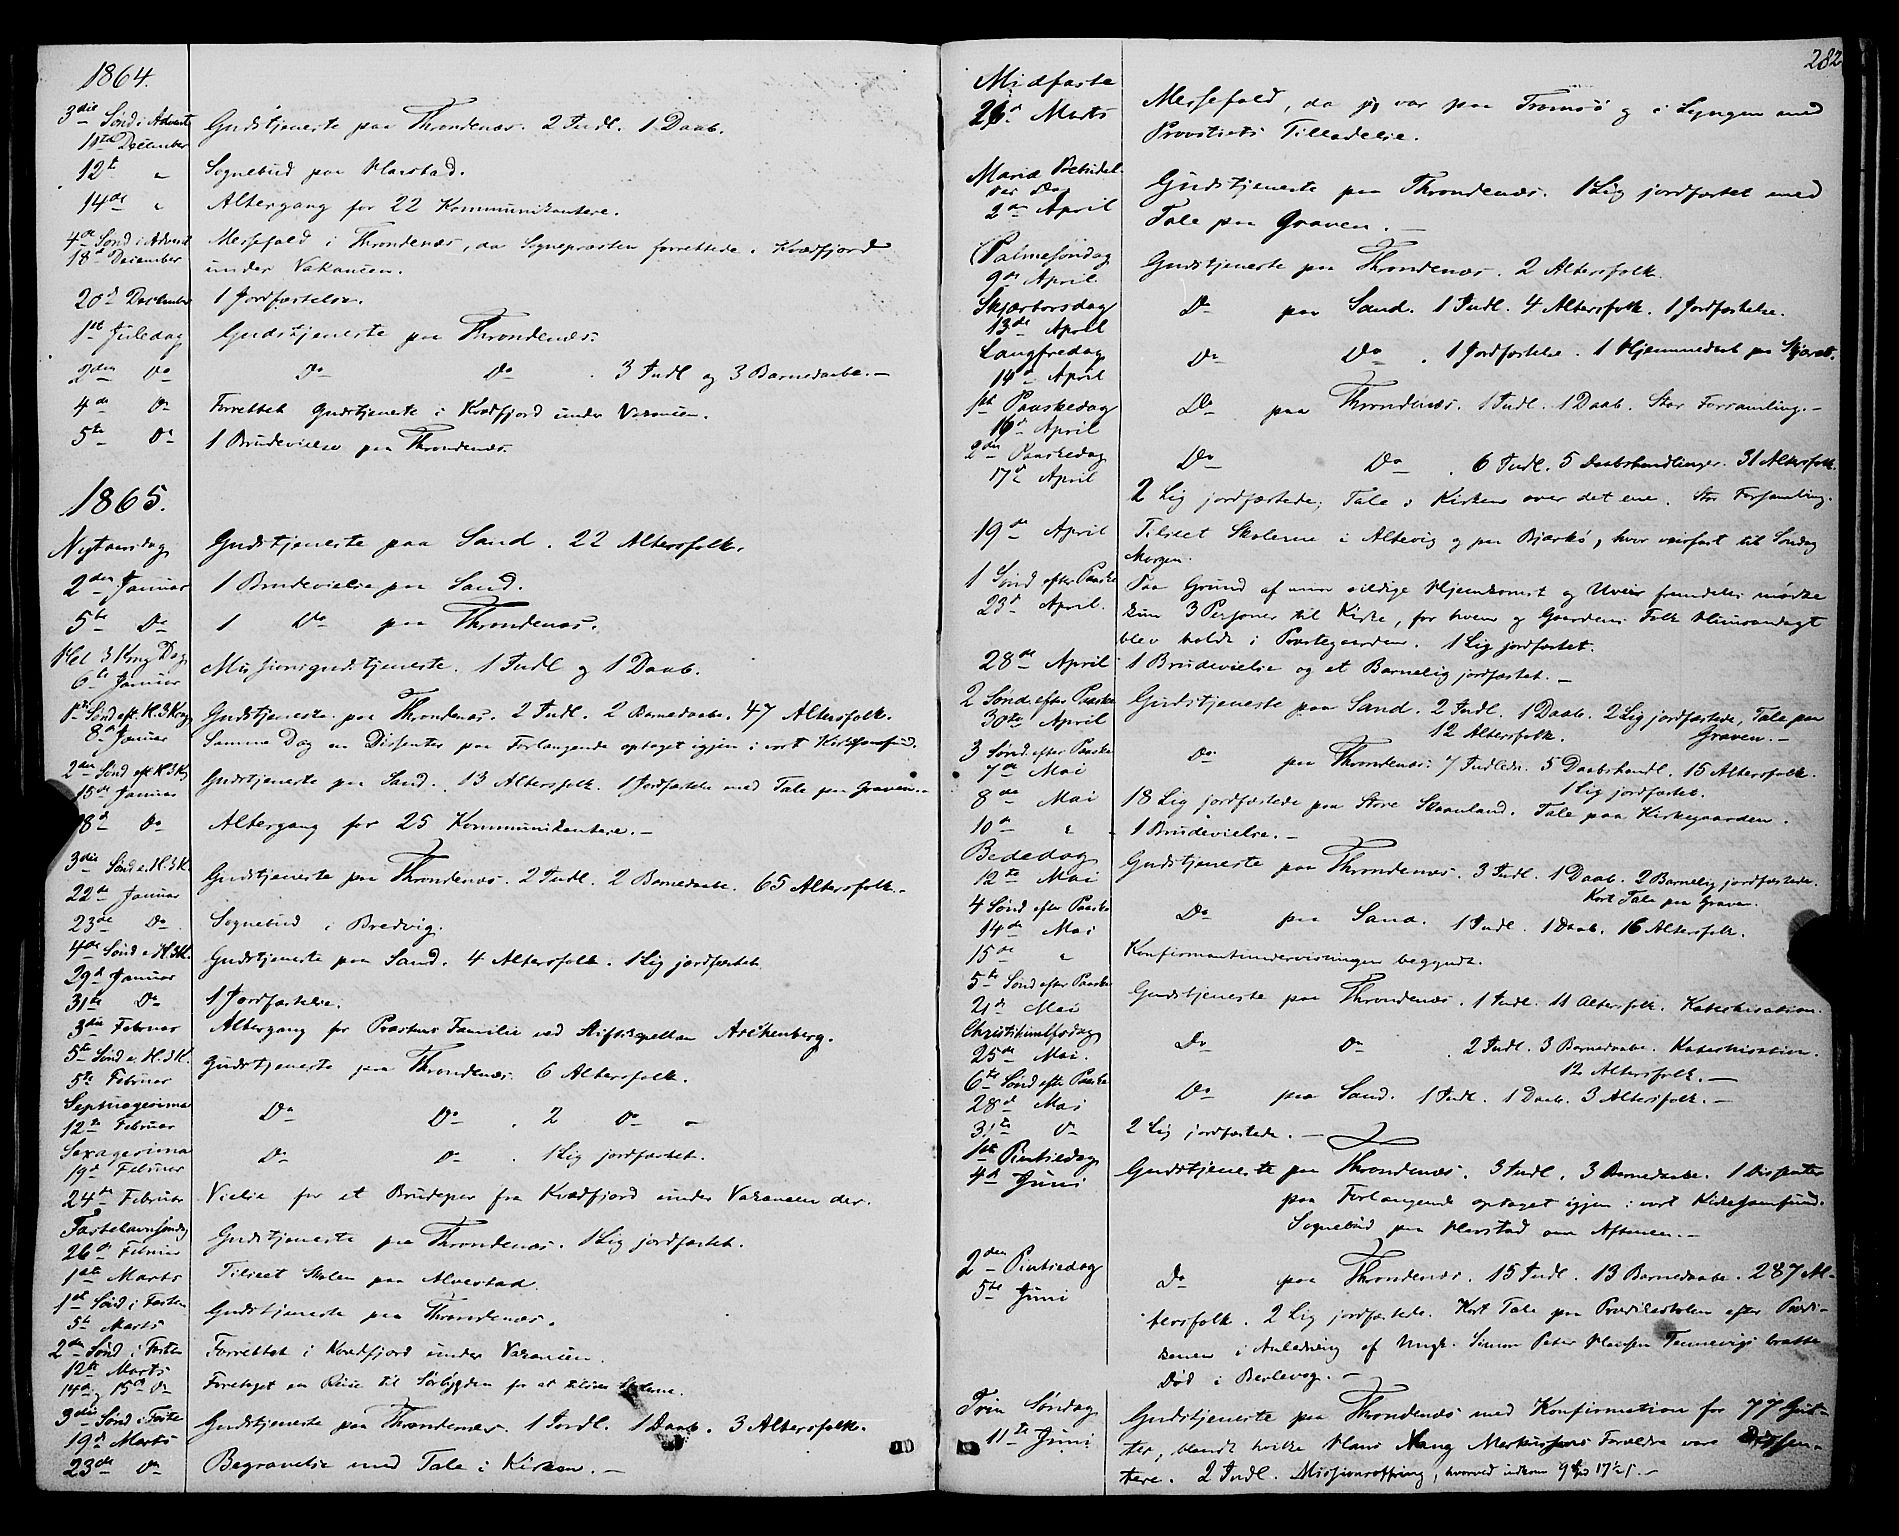 1864.
3die Sønd i Advent
11te December Gudstjeneste paa Throndenæs. 2 Indl. 1 Daab.
12te " Sognebud paa Harstad.
14de " Altergang for 22 Kommunikantere.
4de Sønd i Advent Messefald i Throndenæs, da Sognepræsten forrettede i Kvædfjord
18de December under Vakancen.
20de December 1 Jordfæstelse.
1ste Juledag Gudstjeneste paa Throndenæs.
2den Do Do Do . 3 Indl og 3 Barnedaabe. —
4de Do Forrettet Gudstjeneste i Kvædfjord under Vakancen.
5te Do 1 Brudevielse paa Throndenæs.
1865.
Nytaarsdag Gudstjeneste paa Sand. 22 Altersfolk.
2den Januar 1 Brudevielse paa Sand.
5te Do 1 Do paa Throndenæs.
Hel 3 Kong Dag
6te Januar Missionsgudstjeneste. 1 Indl og 1 Daab.
1ste Sønd eft. H. 3 Kong Gudstjeneste paa Throndenæs. 2 Indl. 2 Barnedaabe. 47 Altersfolk.
8de Januar Samme Dag en Dissenter paa Forlangende optaget igjen i vort Kirkesamfund.
2den Sønd eft H 3 K
15de Januar Gudstjeneste paa Sand. 13 Altersfolk. 1 Jordfæstelse med Tale paa Graven. —
18de Do Altergang for 25 Kommunikantere. —
3die Sønd e. H. 3 K.
22de Januar Gudstjeneste paa Throndenæs. 2 Indl. 2 Barnedaabe. 65 Altersfolk. —
23de Do Sognebud i Bredvig.
4de Sønd e. H 3 K.
29de Januar Gudstjeneste paa Sand. 4 Altersfolk. 1 Lig jordfæstet.
31te Do 1 Jordfæstelse.
3die Februar Altergang for Præstens Familie ved Stiftskapellan Aschenberg.
5te Sønd e. H. 3 K.
5te Februar Gudstjeneste paa Throndenæs. 6 Altersfolk.
Septuagesima
12te Februar Do Do . 2 Do —
Sexagesima
19de Februar Do Do . 1 Lig jordfæstet.
24de Februar Vielse for et Brudepar fra Kvædfjord under Vakancen der.
Fastelavnsøndag
26de Februar Gudstjeneste paa Throndenæs. 1 Lig jordfæstet.
1ste Marts Tilseet Skolen paa Alvestad.
1ste Sønd i Fasten
5te Marts Gudstjeneste paa Throndenæs.
2den Sønd i Fasten
12te Marts Forrettet i Kvædfjord under Vakancen.
14de og 15de Do Foretaget en Reise til Sørbygden for at tilsee Skolerne.
3die Sønd i Faste
19de Marts Gudstjeneste paa Throndenæs. 1 Indl. 1 Daab. 3 Altersfolk.
23de Do Begravelse med Tale i Kirken. —
282
Midfaste
26de Marts Messefald, da jeg var paa Tromsø og i Lyngen med
Provstiets Tilladelse.
Mariæ Bebudel-
ses Dag
2den April Gudstjeneste paa Throndenæs. 1 Lig jordfæstet med
Tale paa Graven. —
Palmesøndag
9de April Gudstjeneste paa Throndenæs. 2 Altersfolk.
Skjærtorsdag
13de April Do paa Sand. 1 Indl. 4 Altersfolk. 1 Jordfæstelse.
Langfredag
14de April Do Do . 1 Jordfæstelse. 1 Hjemmedaab paa
1ste Paaskedag
16de April Do paa Throndenæs. 1 Indl. 1 Daab. Stor Forsamling. —
2den Paaskedag
17de April Do Do . 6 Indl. 5 Daabshandlinger. 31 Altersfolk.
2 Lig jordfæstede; Tale i Kirken over det ene. Stor Forsamling.
19de April Tilseet Skolerne i Altevig og paa Bjarkø, hvor veirfast til Søndag
Morgen.
1 Sønd efter Paaske
23de April. Paa Grund af min sildige Hjemkomst og Uveir fremdeles mødte
kun 3 Personer til Kirke, for hvem og Gaardens Folk Huusandagt
blev holdt i Præstegaarden. 1 Lig jordfæstet.
28de April 1 Brudevielse og et Barnelig jordfæstet. —
2 Sønd efter Paaske
30te April Gudstjeneste paa Sand. 2 Indl. 1 Daab. 2 Lig jordfæstede, Tale paa
12 Altersfolk. Graven. —
3 Sønd efter Paaske
7de Mai Do paa Throndenæs. 7 Indledn. 5 Daabshandl. 15 Altersfolk.
1 Lig jordfæstet.
8de Mai 18 Lig jordfæstede paa Store Skaanland. Tale paa Kirkegaarden.
10de " 1 Brudevielse. —
Bededag
12te Mai Gudstjeneste paa Throndenæs. 3 Indl. 1 Daab. 2 Barnelig jordfæstede.
Kort Tale paa Graven.
4 Sønd efter Paaske
14de Mai Do paa Sand. 1 Indl. 1 Daab. 16 Altersfolk.
15de " Konfirmantundervisningen begyndt.
5te Sønd efter Paaske
21de Mai Gudstjeneste paa Throndenæs. 1 Indl. 11 Altersfolk. Katechisation.
Christihimelfsdag
25de Mai. Do Do . 2 Indl. 3 Barnedaabe. Katechisation.
12 Altersfolk. —
6te Sønd efter Paaske
28de Mai Do paa Sand. 1 Indl. 1 Daab. 3 Altersfolk. —
31te Do 2 Lig jordfæstede. —
1ste Pintsedag
4de Juni Gudstjeneste paa Throndenæs. 3 Indl. 3 Barnedaabe. 1 Dissenter
paa Forlangende optaget igjen i vort Kirkesamfund.
Sognebud paa Harstad om Aftenen. —
2den Pintsedag
5te Juni Do paa Throndenæs. 15 Indl. 13 Barnedaabe. 287 Al-
tersfolk. 2 Lig jordfæstede. Kort Tale paa Prædikestolen efter Prædi-
kenen i Anledning af Ungk. Simon Peter Hansen Tennevigs bratte
Død i Berlevog. —
Trin Søndag
11te Juni Gudstjeneste paa Throndenæs med Konfirmation for 77 Gut-
ter, blandt hvilke Hans Mang Markussens Forældre vare Dissen-
tere. 2 Indl. Missionsoffring, hvorved indkom 9 Spd 17½ s. —